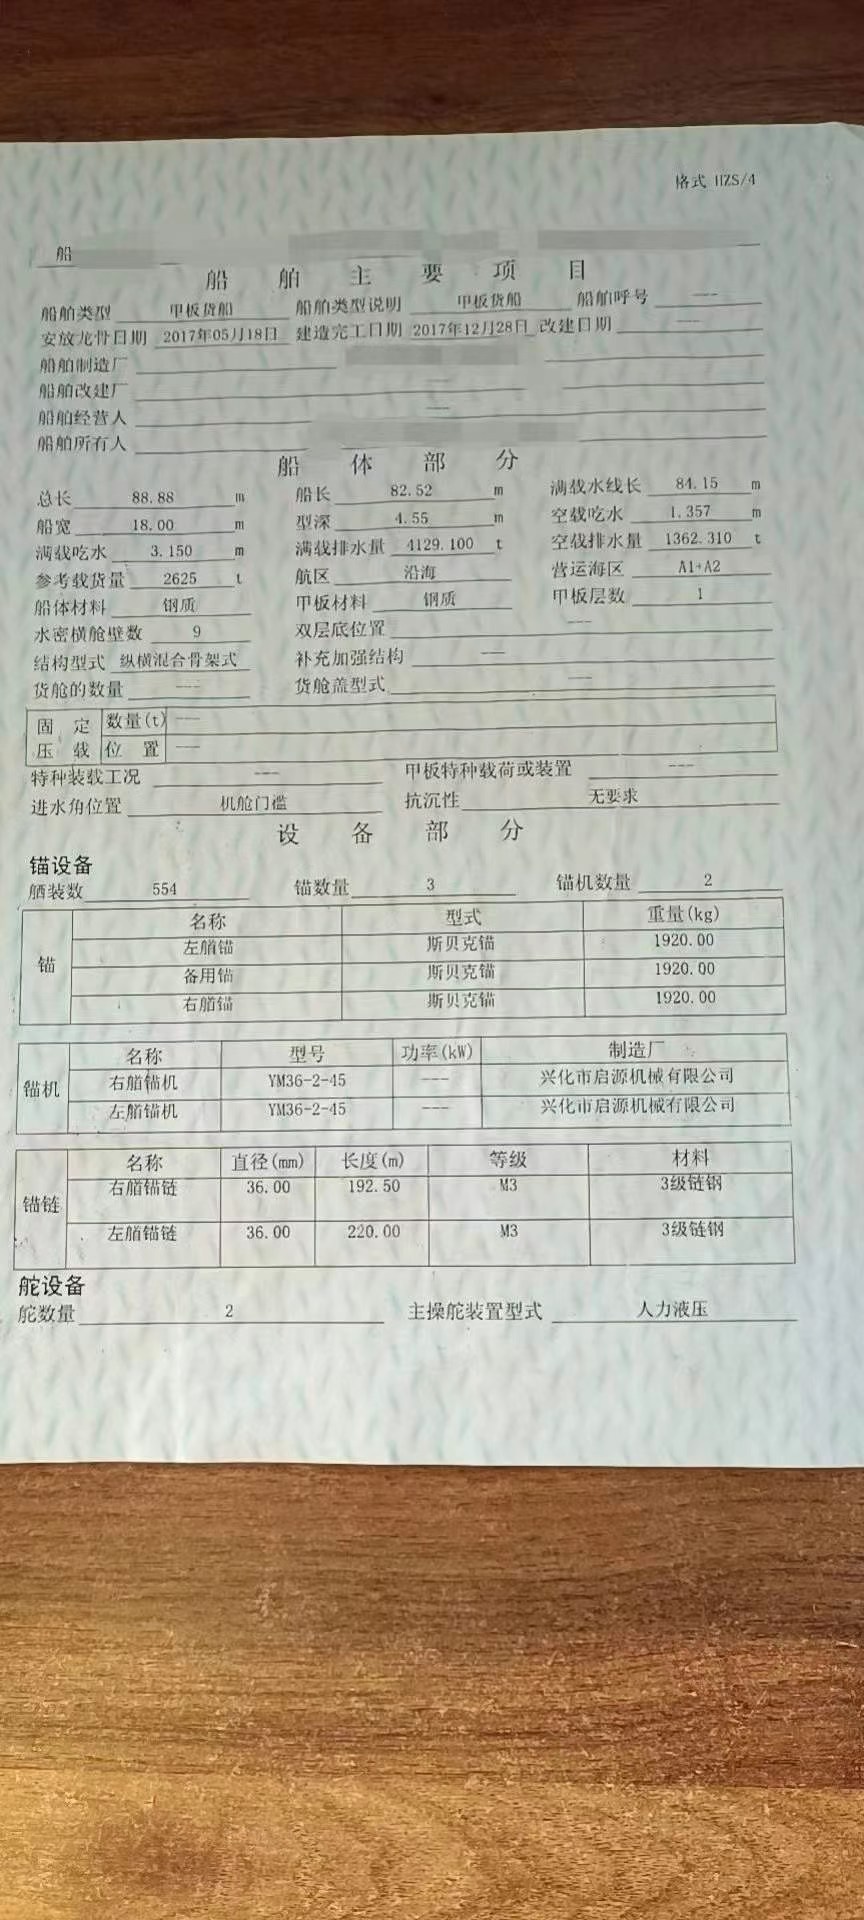 格式 HZS/4
船
船舶主要项目
船舶类型 甲板货船 船舶类型说明 甲板货船 船舶呼号 ---
安放龙骨日期 2017年05月18日 建造完工日期 2017年12月28日 改建日期 ---
船舶制造厂
船舶改建厂 ---
船舶经营人 ---
船舶所有人
船体部分
总长 88.88 m 船长 82.52 m 满载水线长 84.15 m
船宽 18.00 m 型深 4.55 m 空载吃水 1.357 m
满载吃水 3.150 m 满载排水量 4129.100 t 空载排水量 1362.310 t
参考载货量 2625 t 航区 沿海 营运海区 A1+A2
船体材料 钢质 甲板材料 钢质 甲板层数 1
水密横舱壁数 9 双层底位置 ---
结构型式 纵横混合骨架式 补充加强结构 ---
货舱的数量 --- 货舱盖型式 ---
固定 数量(t) ---
压载 位置 ---
特种装载工况 --- 甲板特种载荷或装置 ---
进水角位置 机舱门槛 抗沉性 无要求
设备部分
锚设备
舾装数 554 锚数量 3 锚机数量 2
名称 型式 重量(kg)
左艏锚 斯贝克锚 1920.00
锚 备用锚 斯贝克锚 1920.00
右艏锚 斯贝克锚 1920.00
名称 型号 功率(kW) 制造厂
锚机 右艏锚机 YM36-2-45 --- 兴化市启源机械有限公司
左艏锚机 YM36-2-45 --- 兴化市启源机械有限公司
名称 直径(mm) 长度(m) 等级 材料
锚链 右艏锚链 36.00 192.50 M3 3级链钢
左艏锚链 36.00 220.00 M3 3级链钢
舵设备
舵数量 2 主操舵装置型式 人力液压